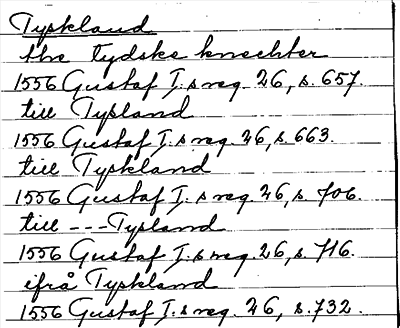 Tyskland
the tydske knechter
1556 Gustaf I.s reg. 26, s. 657.
till Tysland
1556 Gustaf I.s reg. 26, s. 663.
till Tyskland
1556 Gustaf I.s reg. 26, s. 706.
till --- Tysland
1556 Gustaf I.s reg. 26, s. 716.
ifrå Tyskland
1556 Gustaf I.s reg. 26, s. 732.